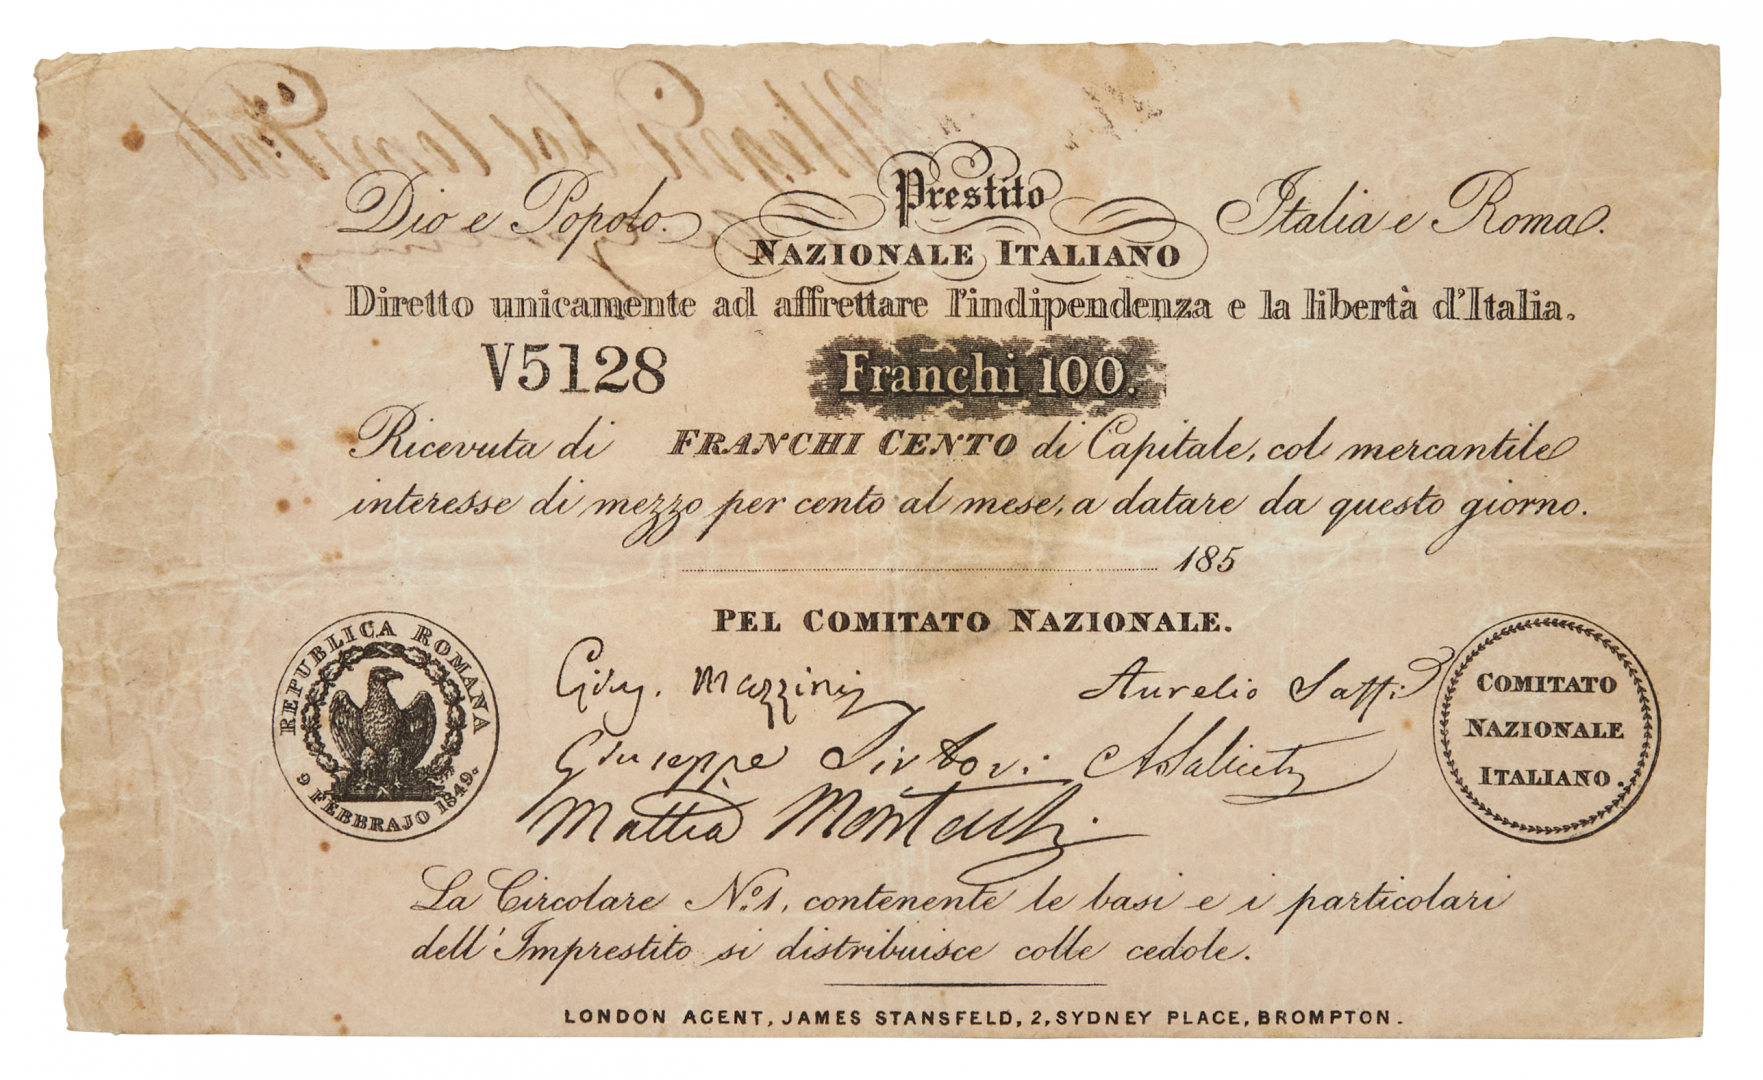 Dio e Popolo.
Prestito
Italia e Roma.
NAZIONALE ITALIANO
Diretto unicamente ad affrettare l'indipendenza e la libertà d'Italia.
V5128
Franchi 100.
Ricevuta di FRANCHI CENTO di Capitale, col mercantile
interesse di mezzo per cento al mese, a datare da questo giorno.
185
PEL COMITATO NAZIONALE.
REPUBLICA ROMANA
9 FEBBRAJO 1849.
Mazzini
Aurelio Saffi
Giuseppe Sirtori
Mattia Montecchi
COMITATO
NAZIONALE
ITALIANO.
La Circolare No. 1, contenente le basi e i particolari
dell'Imprestito si distribuisce colle cedole.
LONDON AGENT, JAMES STANSFELD, 2, SYDNEY PLACE, BROMPTON.